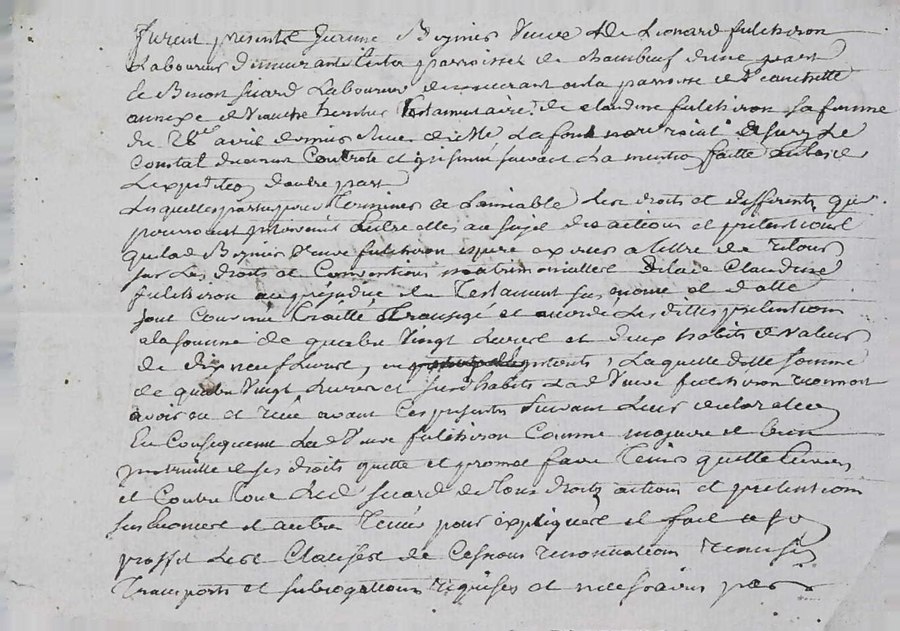 furent presents Jerome Veuve de Leonard fulchiron
Laboureur demeurant parroisse de chambeuf d'une part
et Laboureur demeurant en la parroisse de Veauchette
annexe de Veauche heritier testamentaire de claudine fulchiron sa femme
du 28e avril dernier Reçu de Me Lafont nore roial de sury Le
Constal duement Controle et insinué suivant La mention faitte au bas de
L'expedition d'autre part
Lesquelles parties pour terminer a L'amiable Les droits et differents qui
pourroient intervenir entre elles au sujet des actions et pretentions
que lad Veuve fulchiron espere exercer a titre de retour
sur Les droits et Conventions matrimonialles de lade Claudine
fulchiron au prejudice du Testament sus enoncé et datté
sont Convenu traitté transigé et accordé Lesdittes pretentions
a la somme de quatre Vingt Livres et deux habits de Valeur
de dix neuf Livres, Laquelle ditte somme
de quatre Vingt Livres et susd habits Lad Veuve fulchiron reconnoit
avoir eu et reçu avant Ces presentes suivant Leur declaration
En Consequence Lad Veuve fulchiron Comme majeure et bien
de ses droits quitte et promet faire tenir quitte Envers
et Contre tous Led de tous droits actions et pretentions
sus enoncés et autres pour expliqués et fait a son
proffit Les Clauses de Cessions renonciations
Transports et subrogations requises et necessaires par